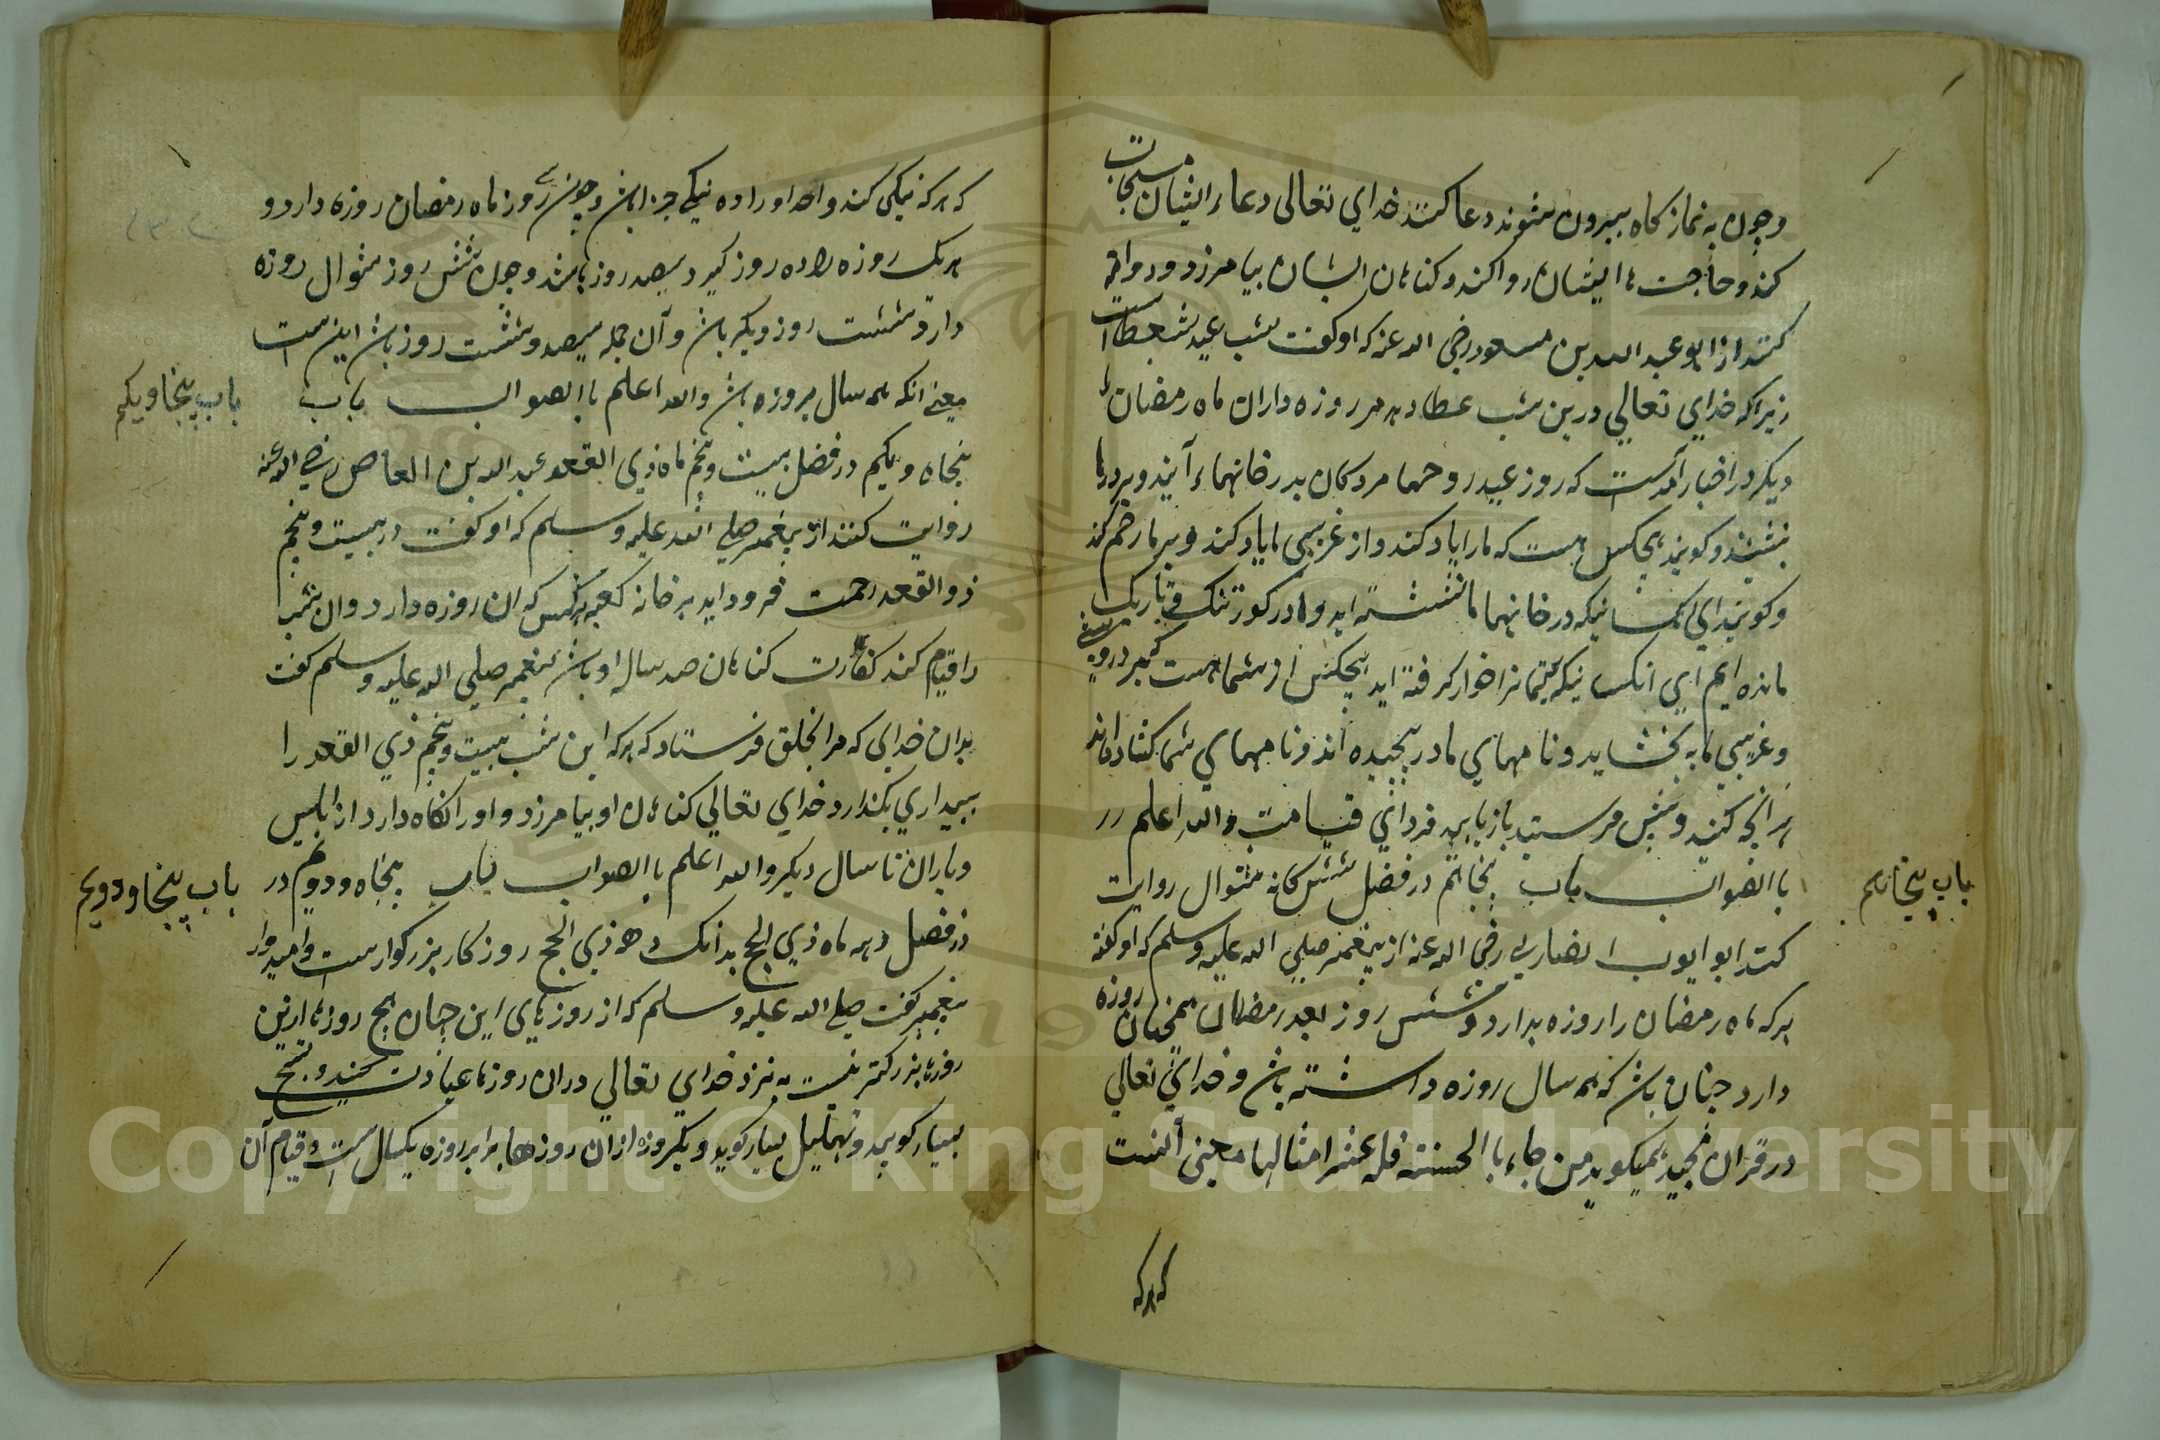 وچون به نماز کاه بیرون شوند دعا کنند خدای تعالی دعاء ایشان مستجاب
کند و حاجت ها ایشان روا کند و کناهان ایشان بیامرزد و روایة
کنند از ابو عبد الله بن مسعود رضی الله عنه که او کفت شب عید شب عطا است
زیرا که خدای تعالی درین شب عطا دهد مر روزه داران ماه رمضان را
دیکر در اخبار آمدست که روز عید روحها مردکان بدر خانهاء آیند و بر درها
بنشینند و کویند هیچکس هست که مارا یاد کند و از غریبی ما یاد کند و بر ما رحم کند
و کویند ای کسانیکه در خانهما ما نشسته اید و ما در کور تنک و تاریک
مانده ایم ای انکسانیکه یتیمانرا خوار کرفته اید هیچکس از شما هست که بر درویشی
و غریبی ما به بخشاید و نامهای ما در پیچیده اند و نامهای شما کشاده اند
هر انچه کنید و پیش فرستید باز یابید فردای قیامت والله اعلم
باالصواب باب پنجاهم در فضل شش کانه شوال روایت
کنند ابو ایوب انصاری رضی الله عنه از پیغمبر صلی الله علیه وسلم که او کفت
هر که ماه رمضان را روزه بدارد و شش روز بعد رمضان همچنان روزه
دارد چنان باشد که همه سال روزه داشته باشد و خدای تعالی
در قران مجید همیکوید من جاء باالحسنة فله عشر امثالها معنی آنست
که هر که
باب پنجاهم
که هر که نیکی کند واحد او را ده نیکی جزا باشد و چون سی روز ماه رمضان روزه دارد و
هر یک روزه را ده روز کیرد سیصد روز باشد و چون شش روز شوال روزه
دارد شصت روز دیکر باشد و آن جمله سیصد و شصت روز باشد این ست
معنی انکه همه سال بروزه باشد والله اعلم باالصواب باب
پنجاه و یکم در فضل بیست و پنجم ماه ذی القعد عبد الله بن العاص رضی الله عنه
روایت کنند از پیغمبر صلی الله علیه وسلم که او کفت در بیست و پنجم
ذو القعد رحمت فرود اید بر خانه کعبه هر کس که ان روزه دارد و ان شب
را قیام کند کفارت کناهان صد ساله او باشد پیغمبر صلی الله علیه وسلم کفت
بدان خدایی که مرا بخلق فرستاد که هر که این شب بیست و پنجم ذی القعد را
ببیداری بکذارد خدای تعالی کناهان او بیامرزد و او را نکاه دارد از ابلیس
و یاران تا سال دیکر والله اعلم باالصواب باب پنجاه و دویم در
در فضل دهه ماه ذی الحج بدانک دهه ذی الحج روز کار بزرکوارست و امیدوار
پیغمبر کفت صلی الله علیه وسلم که از روزهای این جهان هیچ روزها ازین
روزها بزرکتر نیست به نزد خدای تعالی دران روزها عبادت کنید و تسبیح
بسیار کویید و تهلیل بسیار کویید و یکروزه ازان روزها برابر روزه یکسال ست و قیام آن
باب پنجاویکم
باب پنجاودویم
Copyright © King Saud University